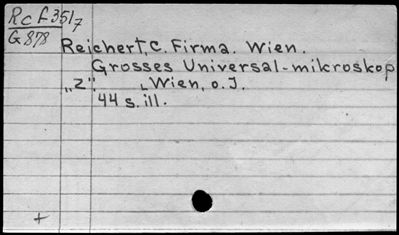 Rc f 3517
G 878
Reichert, C. Firma. Wien.
Grosses Universal-mikroskop
„Z". Wien, o. J.
44 s. ill.
+